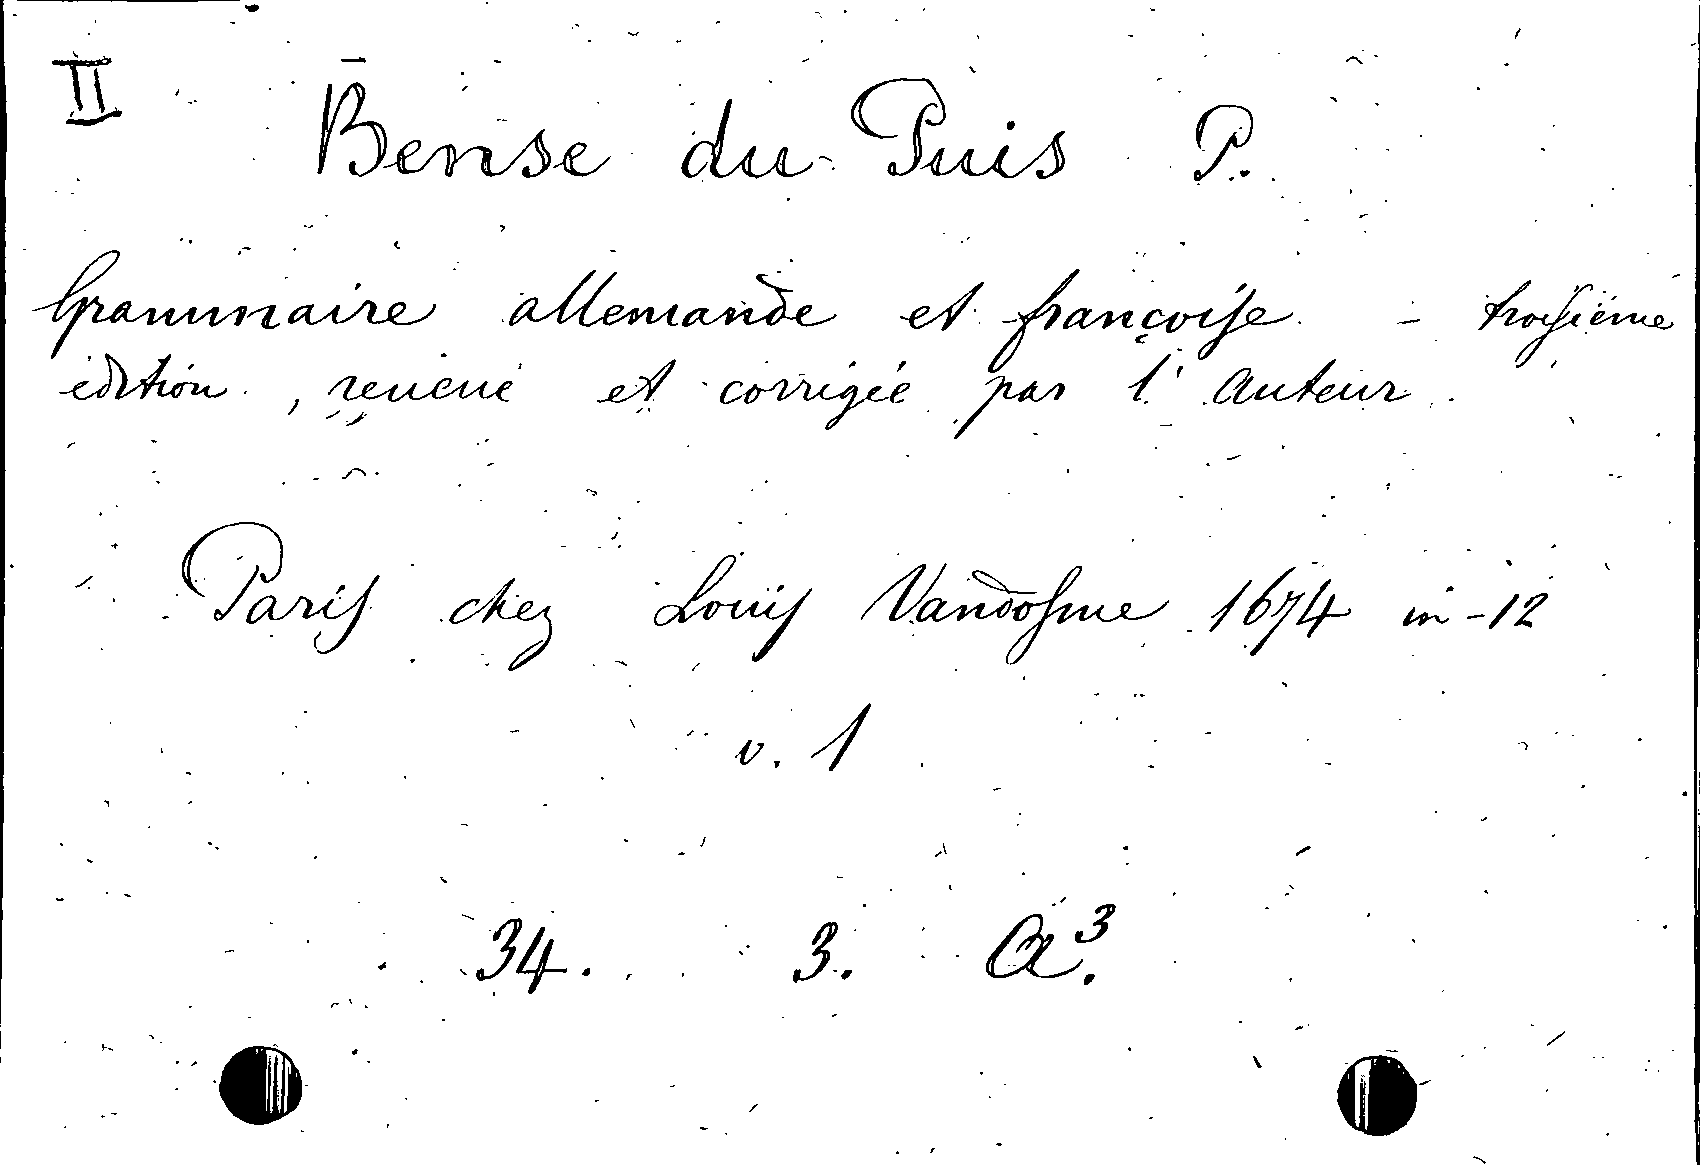 II
Bense du Puis P.
Grammaire allemande et françoiſe - troiſiéme
édition, reueue et corrigée par l'auteur
Pariſ chez Louiſ Vandoſme 1674 in-12
v. 1
34. 3. A³.